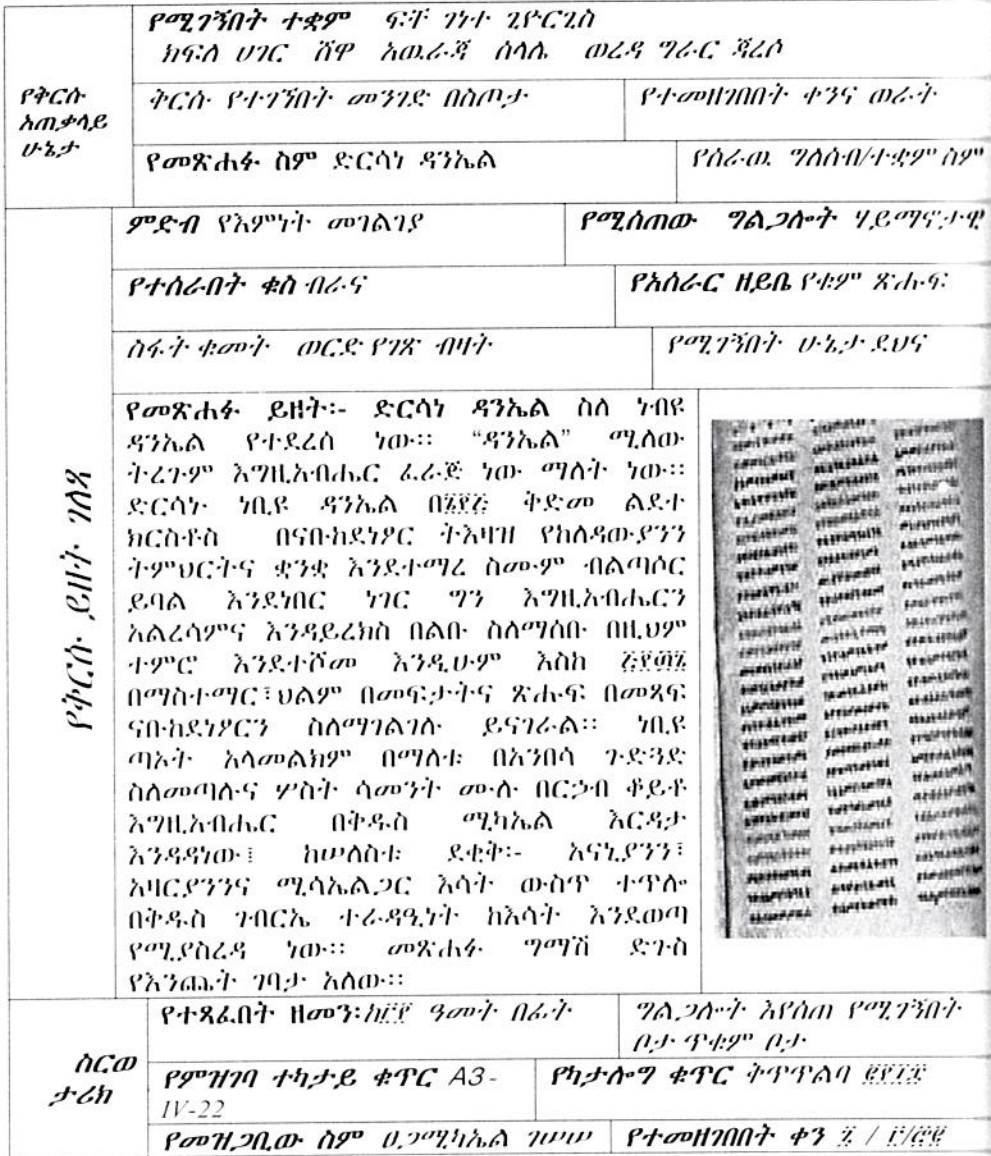 የሚገኝበት ተቋም ፍቸ ገነተ ጊዮርጊስ
ክፍለ ሀገር ሸዋ አዉራጃ ሰላሌ ወረዳ ግራር ጃረሶ
የቅርሱ አጠቃላይ ሁኔታ
ቅርሱ የተገኘበት መንገድ በስጦታ
የተመዘገበበት ቀንና ወራት
የመጽሐፉ ስም ድርሳነ ዳንኤል
የሰራዉ ግለሰብ/ተቋም ስም
የቅርሱ ይዘት ገለጻ
ምድብ የእምነት መገልገያ
የሚሰጠው ግልጋሎት ሃይማኖታዊ
የተሰራበት ቁስ ብራና
የአሰራር ዘይቤ የቁም ጽሑፍ
ስፋት ቁመት ወርድ የገጽ ብዛት
የሚገኝበት ሁኔታ ደህና
የመጽሐፉ ይዘት፡- ድርሳነ ዳንኤል ስለ ነብዩ
ዳንኤል የተደረሰ ነው፡፡ “ዳንኤል” ሚለው
ትረጉም እግዚአብሔር ፈራጅ ነው ማለት ነው፡፡
ድርሳኑ ነቢዩ ዳንኤል ቅድመ ልደተ
ክርስቶስ በናቡከደነፆር ትእዛዝ የከለዳውያንን
ትምህርትና ቋንቋ እንደተማረ ስሙም ብልጣሶር
ይባል እንደነበር ነገር ግን እግዚአብሔርን
አልረሳምና እንዳይረክስ በልቡ ስለማሰቡ በዚህም
ተምሮ እንደተሾመ እንዲሁም እስከ
በማስተማር፣ህልም በመፍታትና ጽሑፍ በመጻፍ
ናቡከደነፆርን ስለማገልገሉ ይናገራል፡፡ ነቢዩ
ጣኦት አላመልክም በማለቱ በአንበሳ ጉድጓድ
ስለመጣሉና ሦስት ሳመንት ሙሉ በርኃብ ቆይቶ
እግዚአብሔር በቅዱስ ሚካኤል እርዳታ
እንዳዳነው፤ ከሠለስቱ ደቂቅ፡- አናኒያንን፣
አዛርያንንና ሚሳኤልጋር እሳት ውስጥ ተጥሎ
በቅዱስ ገብርኤ ተራዳዒነት ከእሳት እንደወጣ
የሚያስረዳ ነው፡፡ መጽሐፉ ግማሽ ድጉስ
የእንጨት ገበታ አለው፡፡
ስርወ ታሪክ
የተጻፈበት ዘመን፡ ዓመት በፊት
ግልጋሎት እየሰጠ የሚገኝበት
ቦታ ጥቁም ቦታ
የምዝገባ ተካታይ ቁጥር A3-
IV-22
የካታሎግ ቁጥር ቅጥጥልባ
የመዝጋቢው ስም ሀጋሚካኤል ገሠሠ
የተመዘገበበት ቀን